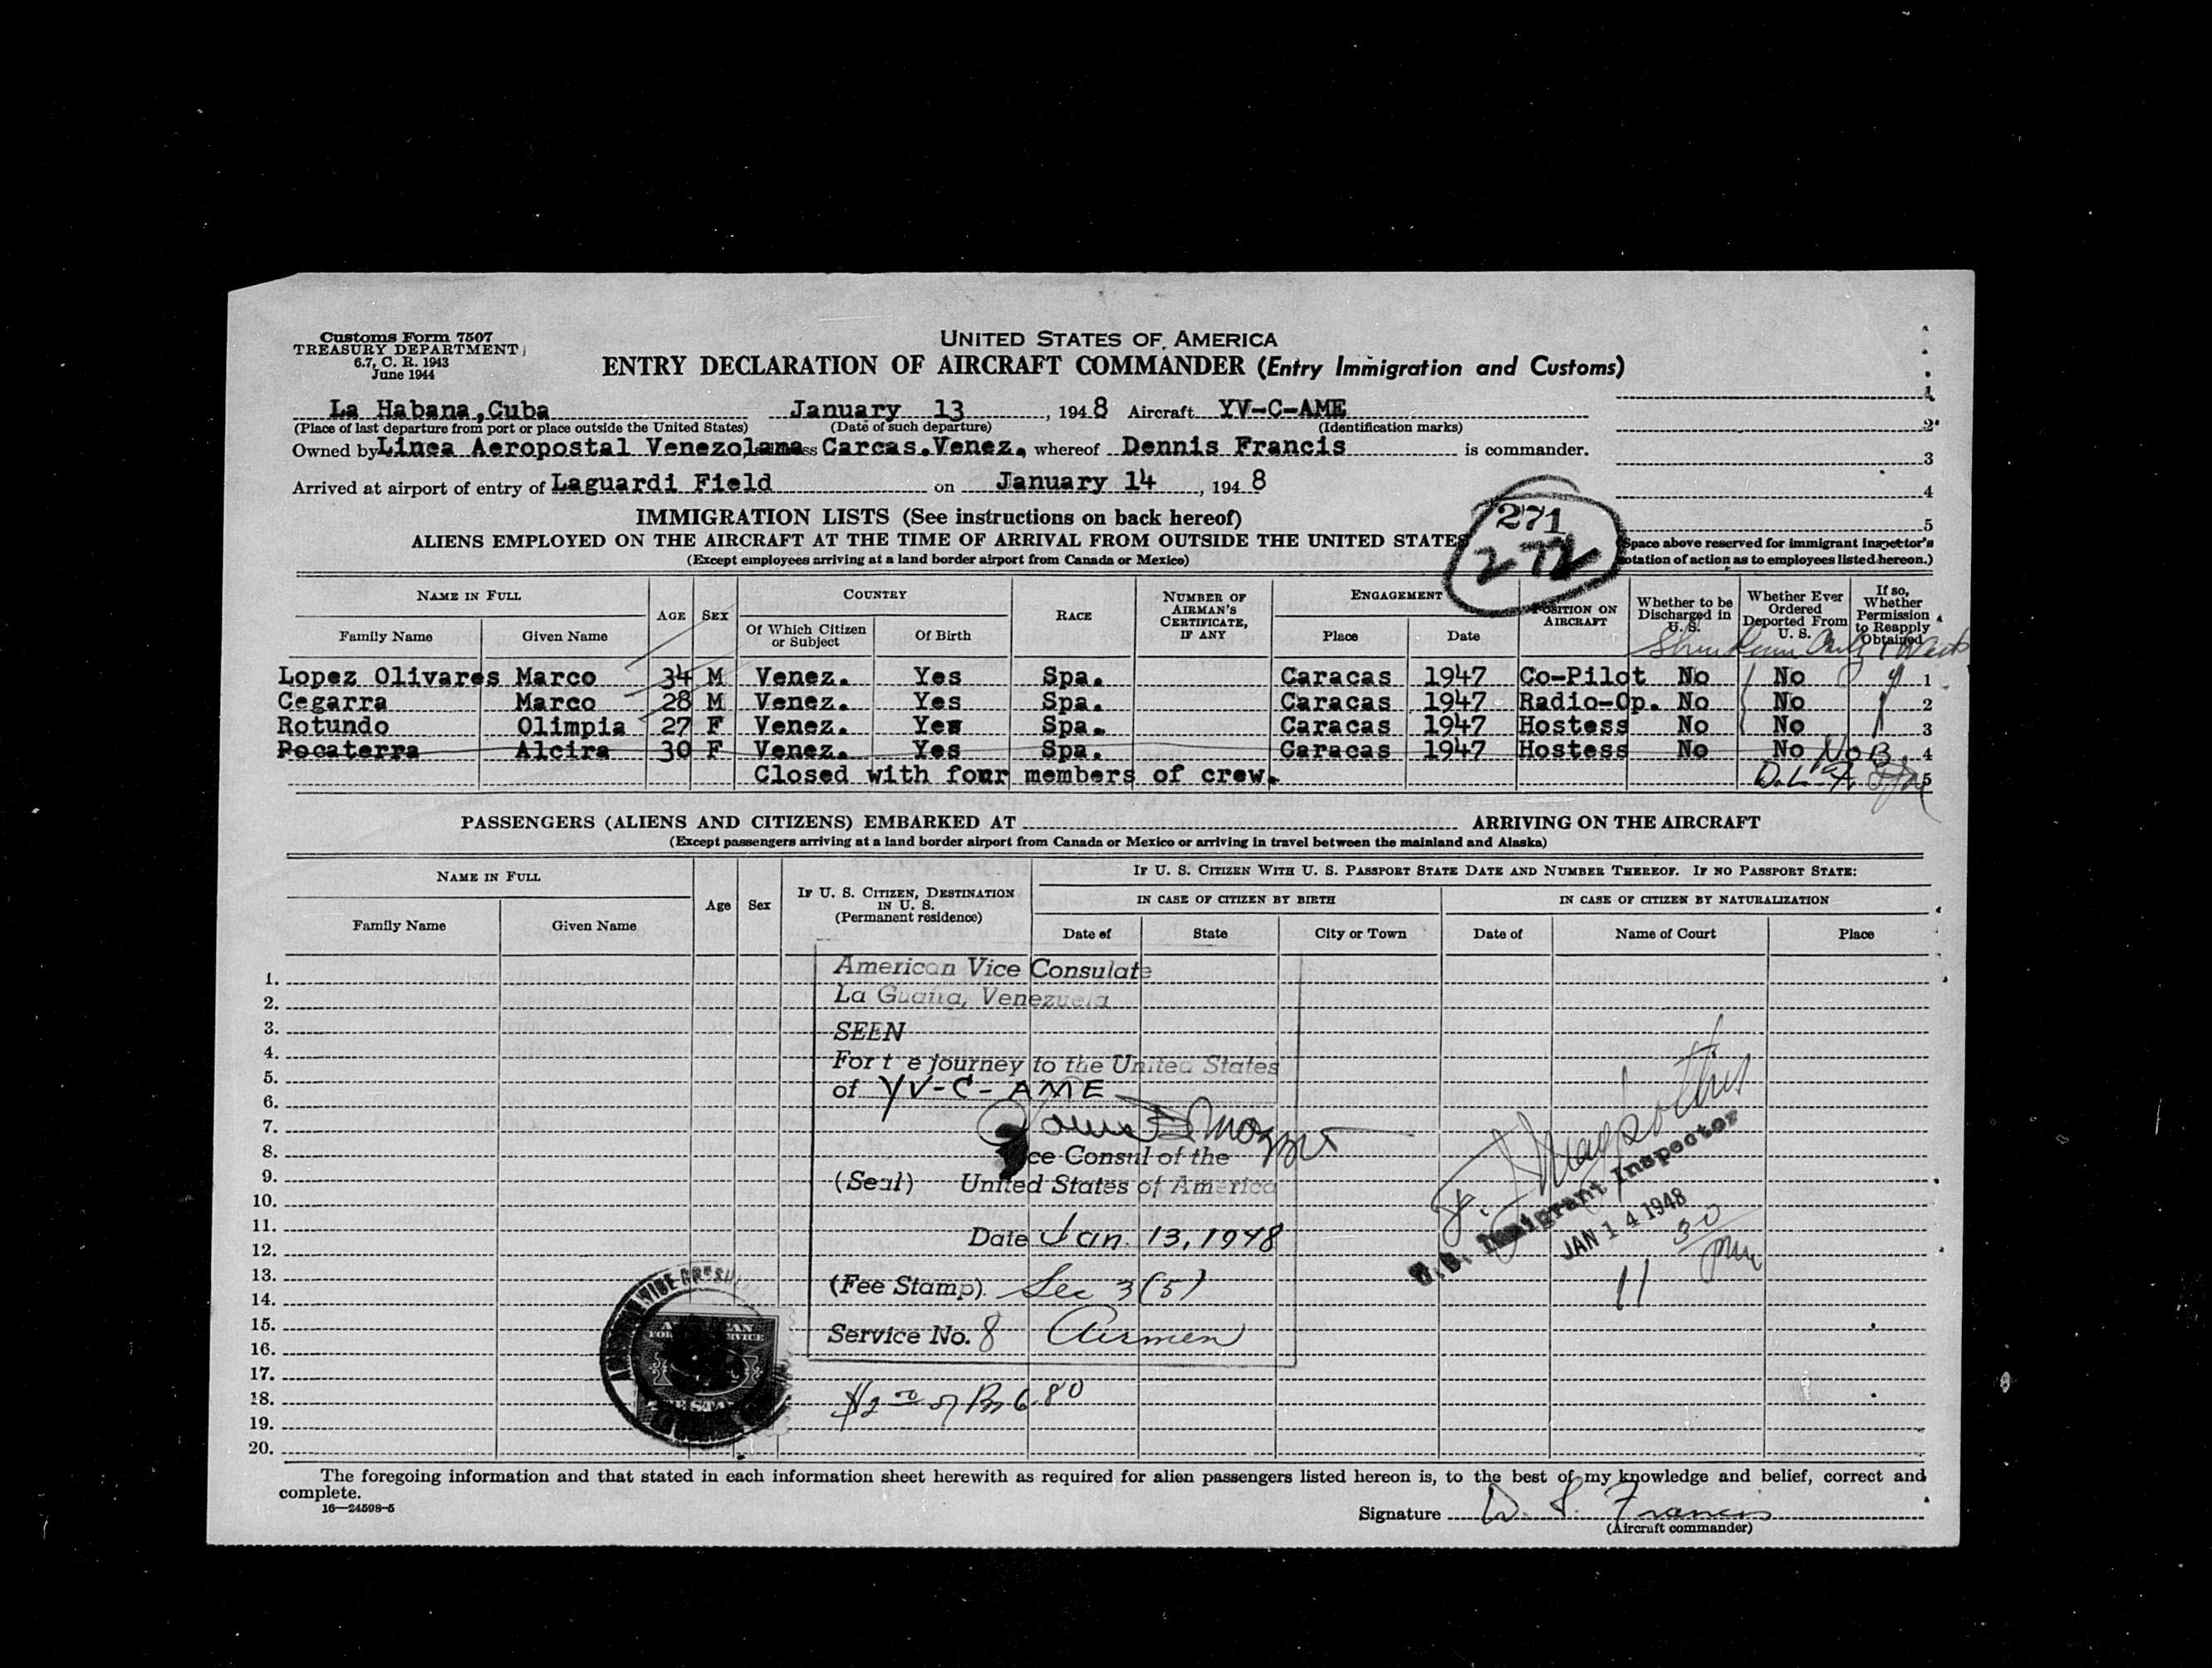 Customs Form 7507
TREASURY DEPARTMENT
6.7, C. R. 1943
June 1944
UNITED STATES OF AMERICA
ENTRY DECLARATION OF AIRCRAFT COMMANDER (Entry Immigration and Customs)
La Habana, Cuba January 13, 1948 Aircraft YV-C-AME
(Place of last departure from port or place outside the United States) (Date of such departure) (Identification marks)
Owned by Linea Aeropostal Venezolana Carcas. Venez. whereof Dennis Francis is commander.
Arrived at airport of entry of Laguardi Field on January 14, 1948
1
2
3
4
5
IMMIGRATION LISTS (See instructions on back hereof)
271
272
ALIENS EMPLOYED ON THE AIRCRAFT AT THE TIME OF ARRIVAL FROM OUTSIDE THE UNITED STATES
(Except employees arriving at a land border airport from Canada or Mexico)
(Space above reserved for immigrant inspector's
notation of action as to employees listed hereon.)
NAME IN FULL AGE SEX COUNTRY RACE NUMBER OF AIRMAN'S CERTIFICATE, IF ANY ENGAGEMENT POSITION ON AIRCRAFT Whether to be Discharged in U. S. Whether Ever Ordered Deported From U. S. If so, Whether Permission to Reapply Obtained
Family Name Given Name Of Which Citizen or Subject Of Birth Place Date
Lopez Olivares Marco 34 M Venez. Yes Spa. Caracas 1947 Co-Pilot No No 1
Cegarra Marco 28 M Venez. Yes Spa. Caracas 1947 Radio-Op. No No 2
Rotundo Olimpia 27 F Venez. Yes Spa. Caracas 1947 Hostess No No 3
Pocaterra Alcira 30 F Venez. Yes Spa. Caracas 1947 Hostess No No NoB 4
Closed with four members of crew. 5
PASSENGERS (ALIENS AND CITIZENS) EMBARKED AT ARRIVING ON THE AIRCRAFT
(Except passengers arriving at a land border airport from Canada or Mexico or arriving in travel between the mainland and Alaska)
NAME IN FULL Age Sex IF U. S. CITIZEN, DESTINATION IN U. S. (Permanent residence) IF U. S. CITIZEN WITH U. S. PASSPORT STATE DATE AND NUMBER THEREOF. IF NO PASSPORT STATE:
IN CASE OF CITIZEN BY BIRTH IN CASE OF CITIZEN BY NATURALIZATION
Family Name Given Name Date of State City or Town Date of Name of Court Place
1.
2.
3.
4.
5.
6.
7.
8.
9.
10.
11.
12.
13.
14.
15.
16.
17.
18.
19.
20.
American Vice Consulate
La Guaira, Venezuela
SEEN
For t e journey to the United States
of YV-C-AME
ce Consul of the
(Seal) United States of America
Date Jan. 13, 1948
(Fee Stamp) Sec 3(5)
Service No. 8 Airmen
U.S. Immigrant Inspector
JAN 14 1948
11 30 pm
The foregoing information and that stated in each information sheet herewith as required for alien passengers listed hereon is, to the best of my knowledge and belief, correct and
complete.
16—24598-5
Signature D. S. Francis
(Aircraft commander)